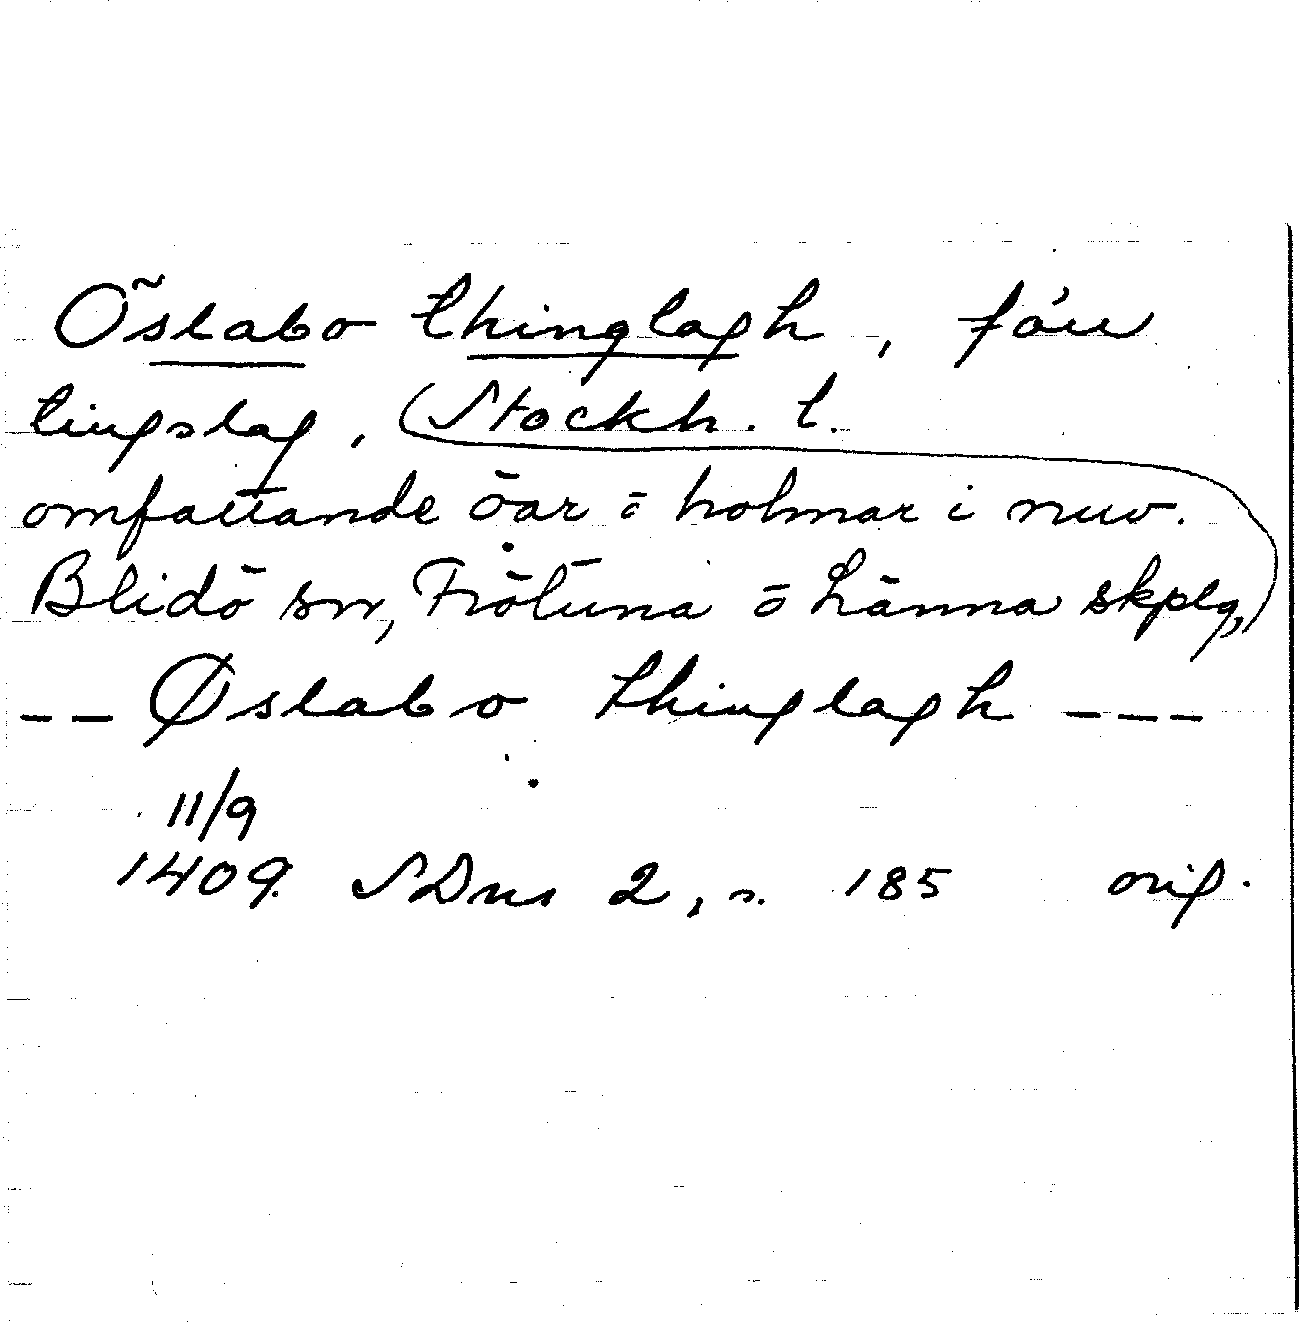 Östabo thinglagh, förv
tingslag, (Stockh. l.
omfattande öar o holmar i nuv.
Blidö sn, Frötuna o Länna skplg,)
-- Østabo thinglagh ---
11/9
1409. SDns 2, s. 185 orig.